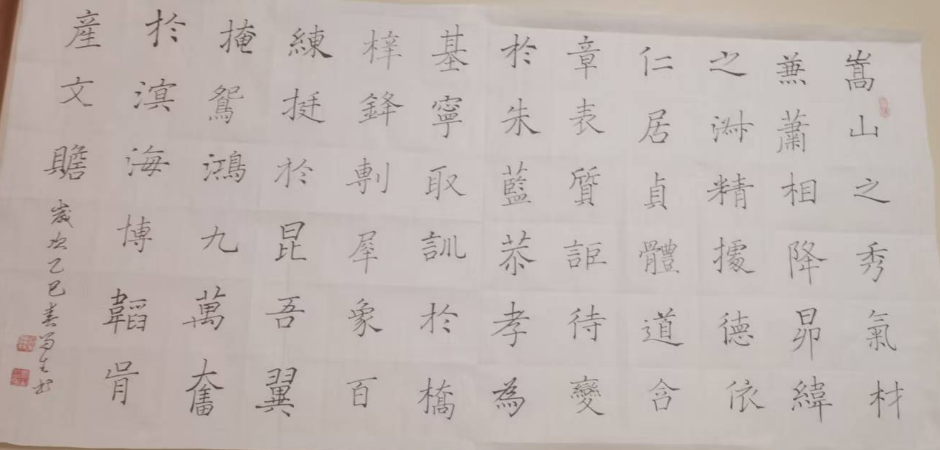 嵩山之秀氣材
兼蕭相降昴緯
之淋精據德依
仁居貞體道含
章表質詎待變
於朱藍恭孝為
基寧取訓於橋
梓鋒剸犀象百
練挺於昆吾翼
掩鴛鴻九萬奮
於溟海博韜胄
産文贍
歲次乙巳春